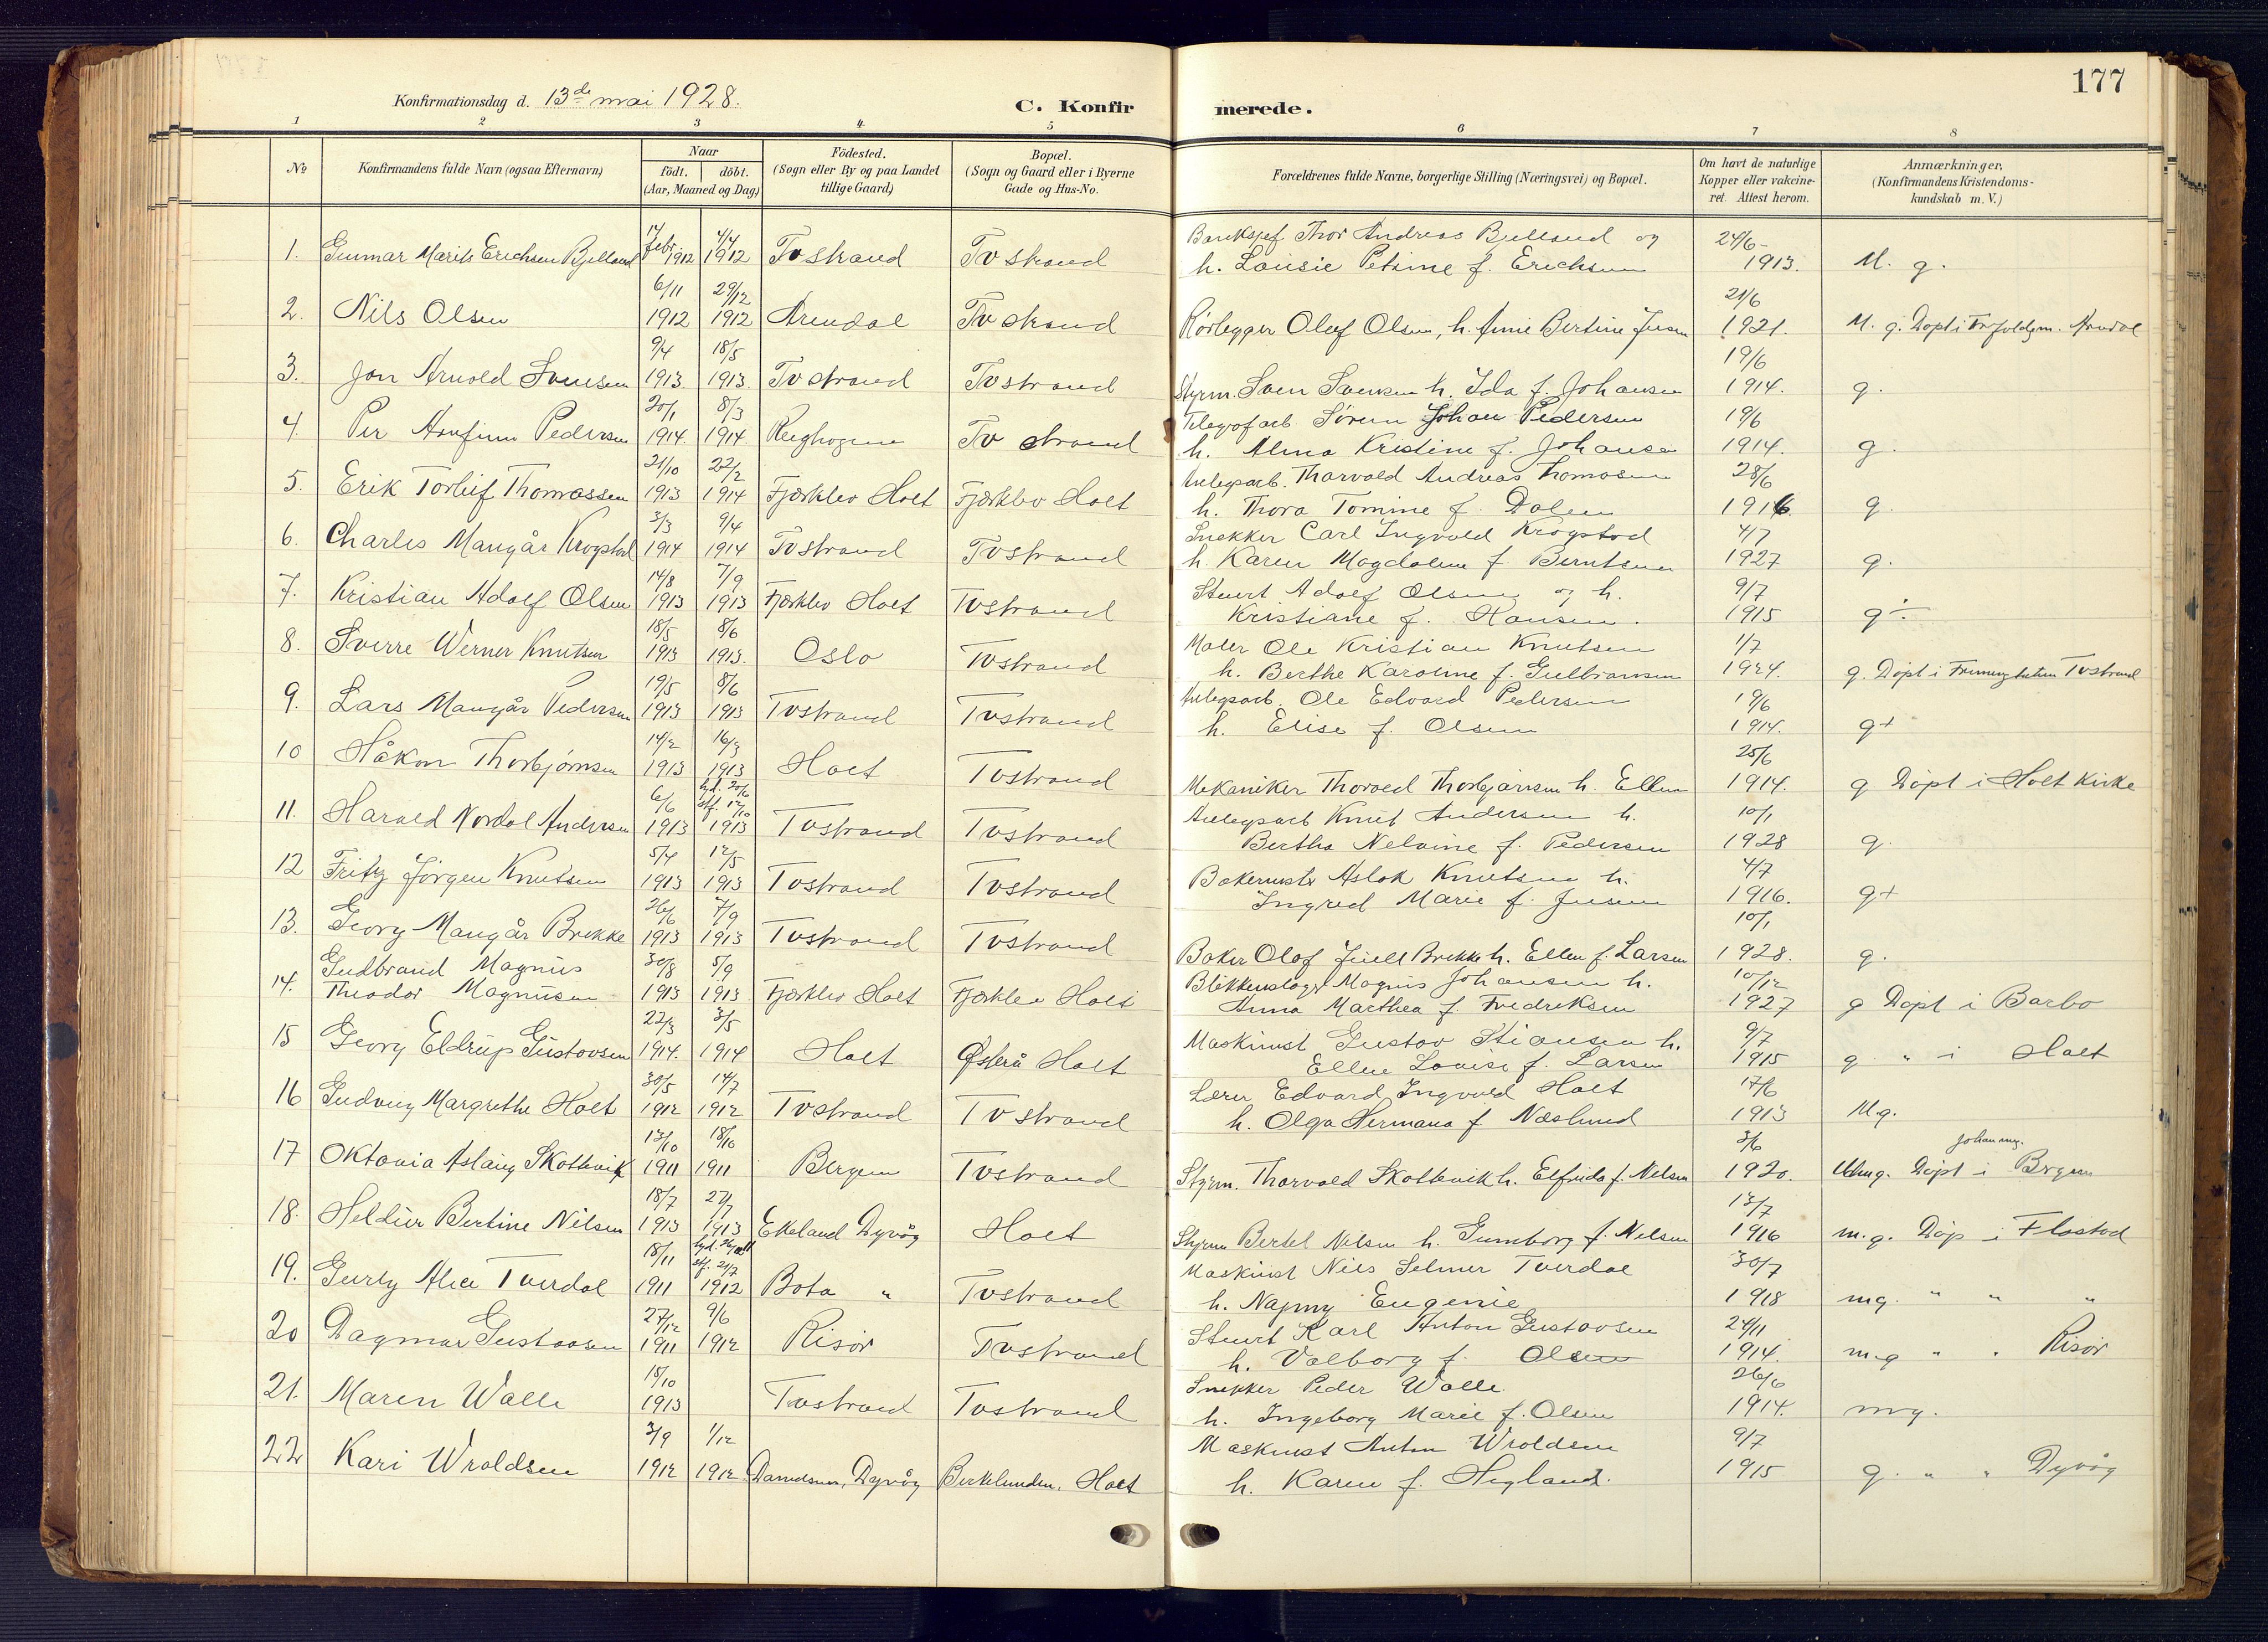 177
Konfirmationsdag d. 13de mai 1928.
C. Konfirmerede.
1 2 3 4 5 6 7 8
No
Konfirmandens fulde Navn (ogsaa Efternavn)
Naar
födt. döbt.
(Aar, Maaned og Dag)
Födested.
(Sogn eller By og paa Landet
tillige Gaard)
Bopæl.
(Sogn og Gaard eller i Byerne
Gade og Hus-No.
Forældrenes fulde Navne, borgerlige Stilling (Næringsvei) og Bopæl.
Om havt de naturlige
Kopper eller vakcine-
ret. Attest herom.
Anmærkninger,
(Konfirmandens Kristendoms-
kundskab m. V.)
1. Gunnar Marils Erichsen Bjelland 17 febr 1912 4/4 1912 Tvstrand Tvstrand Banksjef Thor Andreas Bjelland og
h. Lousie Petrine f. Erichsen 24/6- 1913. M. g.
2. Nils Olsen 6/11 1912 29/12 1912 Arendal Tvstrand Rørlegger Oluf Olsen, h. Anne Bertine Jensen 21/6 1921. M. g. Døpt i Arendal
3. Jon Arnold Svensen 9/4 1913 18/5 1913. Tvstrand Tvstrand Styrm. Sven Svensen h. Ida f. Johansen 19/6 1914. g.
4. Per Arnfinn Pedersen 20/1 1914. 8/3 1914 Tvstrand Telegrafarb Søren Johan Pedersen
h. Alma Kristine f. Johansen 19/6 1914. g.
5. Erik Torleif Thomassen 21/10 1913 22/2 1914 Fjærklev Holt Fjærklev Holt Anlegsarb. Thorvald Andreas Thomasen
h. Thora Tomine f. Dalen 28/6 1916 g.
6. Charles Mangår Krogstad 3/3 1914 9/4 1914 Tvstrand Tvstrand Snekker Carl Ingvald Krogstad
h. Karen Magdalene f. Berntsen 4/7 1927 g.
7. Kristian Adolf Olsen 14/8 1913 7/9 1913 Fjærklev Holt Tvstrand Stuert Adolf Olsen og h.
Kristiane f. Hansen. 9/7 1915 g ÷
8. Sverre Werner Knutsen 18/5 1913 8/6 1913. Oslo Tvstrand Maler Ole Kristian Knutsen
h. Berthe Karoline f. Gulbransen 1/7 1924. g. Døpt i Tvstrand
9. Lars Mangår Pedersen 19/5 1913 8/6 1913 Tvstrand Tvstrand Anlegsarb. Ole Edvard Pedersen
h. Elise f. Olsen 19/6 1914. g+
10 Håkon Thorbjørnsen 14/2 1913 16/3 1913 Holt Tvstrand Mekaniker Thorvald Thorbjørnsen h. Ellen 25/6 1914. g Døpt i Holt Kirke
11. Harald Nordal Andersen 6/6 1913 hjd. 20/6 stf. 12/10 1913 Tvstrand Tvstrand Anlegsarb Knut Andersen h.
Bertha Nelvine f. Pedersen 10/1 1928 g.
12 Fritz Jørgen Knutsen 5/4 1913 12/5 1913 Tvstrand Tvstrand Bakermstr Aslak Knutsen h.
Ingred Marie f. Jensen 4/7 1916. g+
13. Georg Mangår Brekke 26/6 1913 7/9 1913 Tvstrand Tvstrand Baker Olaf Juell Brekke h. Ellen f. Larsen 10/1 1928. g.
14. Gudbrand Magnus
Theodor Magnusen 30/8 1913 5/9 1913 Fjærklev Holt Fjærklev Holt Blikkenslager Magnus Johansen h.
Anna Marthea f. Fredreksen 10/12 1927 g Døpt i Barbo
15 Georg Eldrup Gustavsen 22/3 1914. 3/5 1914 Holt Østerå Holt Maskinist Gustav Stiansen h.
Ellen Louise f. Larsen 9/7 1915 g " i Holt
16 Gudveig Margrethe Holt 30/5 1912 14/7 1912 Tvstrand Tvstrand Lærer Edvard Ingvald Holt
h. Olga Hermana f Næslund 17/6 1913 M.g.
17 Oktavia Aslaug Skottevik 13/10 1911 18/10 1911 Bergen Tvstrand Styrm. Thorvald Skottevik h. Elfrida f. Nelsen 3/6 1920. Døpt i Bergen
18. Heldur Bertine Nilsen 18/7 1913 27/7 1913 Ekeland Dyvåg Holt Styrm Bertel Nilsen h. Gunnborg f. Nilsen 13/7 1916 m.g. Døp i Flostad
19. Gurly Alice Tverdal 18/11 1911 stf. 21/7 1912 Bota " Tvstrand Maskinist Nils Selmer Tverdal
h. Najmy Eugenie 30/7 1918 mg. " " "
20 Dagmar Gustavsen 27/12 1911 9/6 1912 Risør Tvstrand Stuert Karl Anton Gustavsen
h. Valborg f. Olsen 24/11 1914. m.g " " Risør
21. Maren Walle 18/10 1913 Tvstrand Tvstrand Snekker Peder Walle.
h. Ingeborg Marie f. Olsen 26/6 1914. mg.
22 Kari Wroldsen 3/9 1912 1/12 1912. Dyvåg Berkelunden, Holt Maskinist Anton Wroldsen
h. Karen f. Hegland. 9/7 1915 g. " " Dyvåg